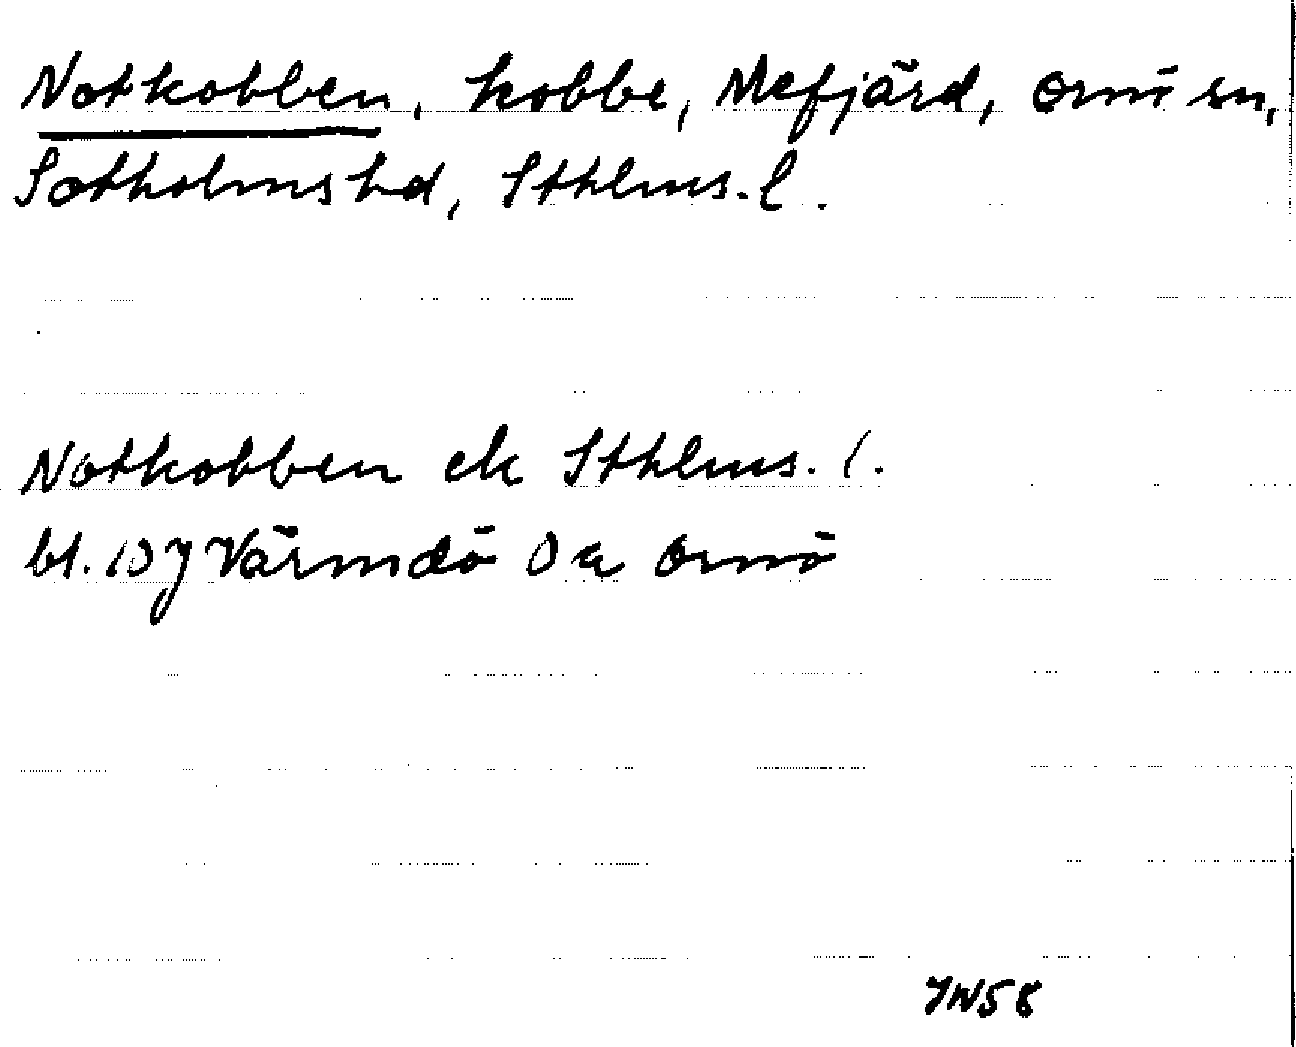 Notkobben, kobbe, Mefjärd, Ornö sn,
Sotholms hd, Sthlms. l.
Notkobben ek Sthlms. l.
bl. 109 Värmdö Da Ornö